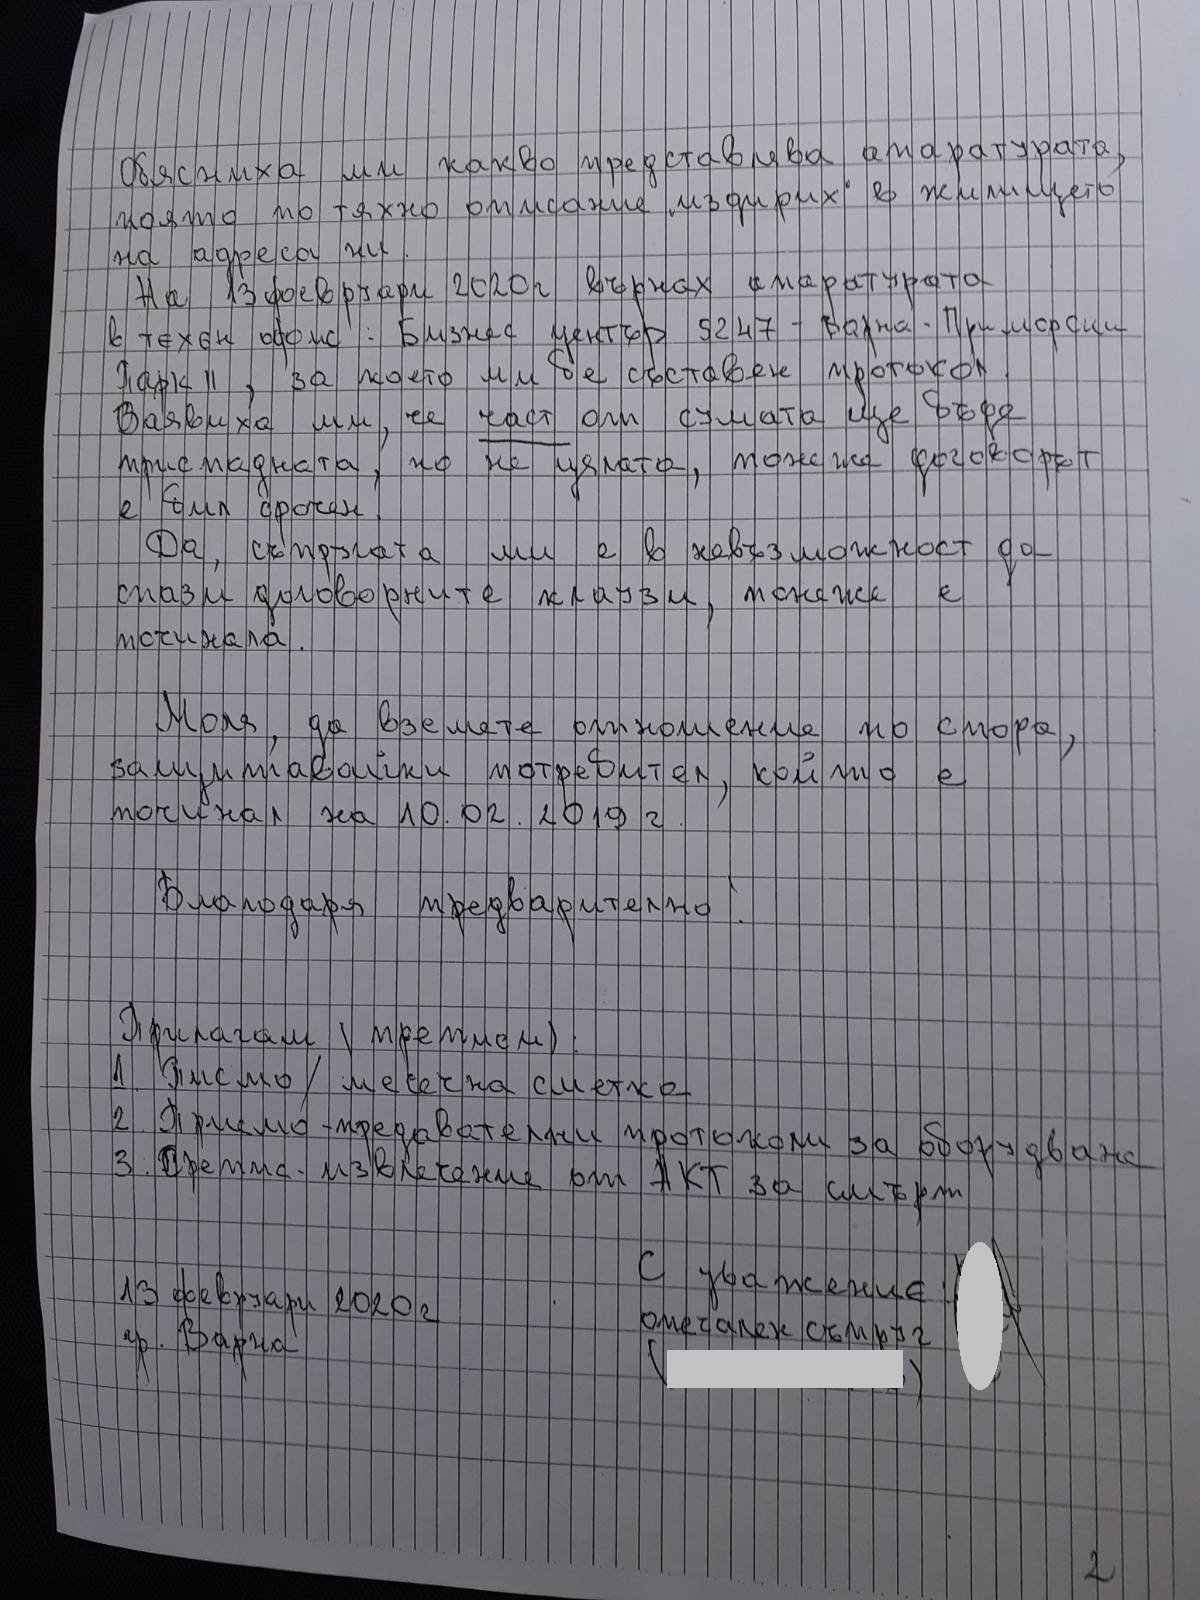 Обясниха ми какво представлява апаратурата,
която по тяхно описание „издирих" в жилището
на адреса ни.
На 13 февруари 2020г върнах апаратурата
в техен офис: Бизнес център 5247 - Варна - Приморски
Парк II, за което ми бе съставен протокол.
Заявиха ми, че част от сумата ще бъде
приспадната, но не цялата, понеже договорът
е бил срочен.
Да, съпругата ми е в невъзможност да
спази договорните клаузи, понеже е
починала.
Моля, да вземете отношение по спора,
защитавайки потребител, който е
починал на 10.02.2019 г.
Благодаря предварително!
Прилагам (преписи):
1. Писмо / месечна сметка
2. Приемо-предавателни протоколи за оборудване
3. Препис-извлечение от АКТ за смърт
13 февруари 2020г
гр. Варна
С уважение:
опечален съпруг
( )
2